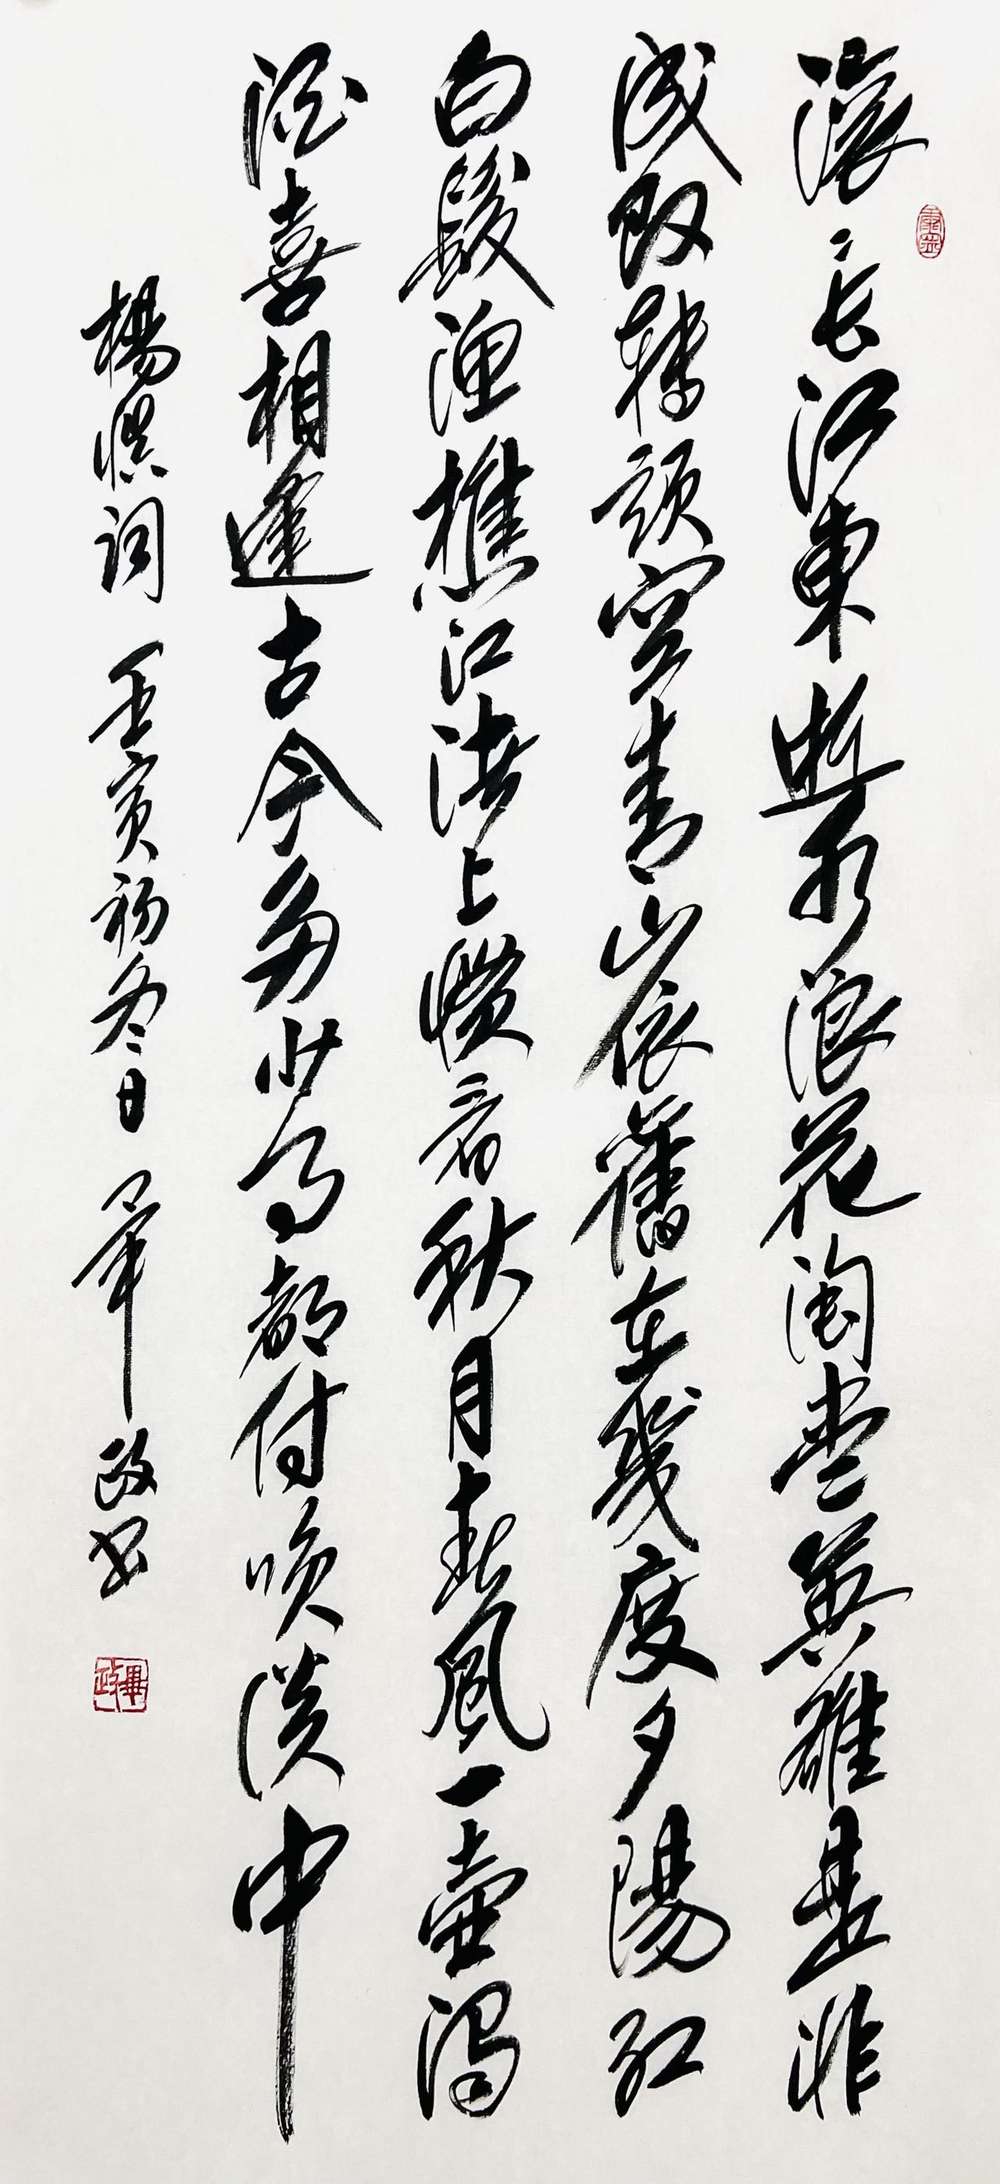 滚〻長江東逝水浪花淘盡英雄是非
成敗轉頭空青山依舊在幾度夕陽紅
白髮漁樵江渚上慣看秋月春風一壺濁
酒喜相逢古今多少事都付咲談中
楊慎詞 壬寅初冬日 畢政书
畢政